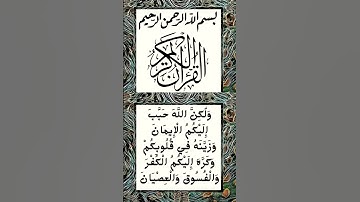 بسم الله الرحمن الرحيم
القرآن الكريم
وَلَكِنَّ اللَّهَ حَبَّبَ
إِلَيْكُمُ الْإِيمَانَ
وَزَيَّنَهُ فِي قُلُوبِكُمْ
وَكَرَّهَ إِلَيْكُمُ الْكُفْرَ
وَالْفُسُوقَ وَالْعِصْيَانَ